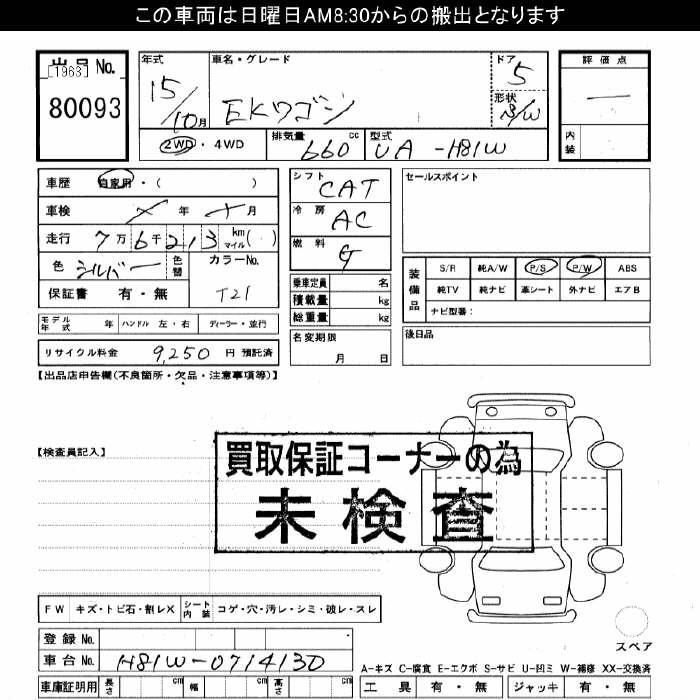 この車両は日曜日AM8:30からの搬出となります
出品No.
[1963]
80093
年式
15/10月
車名・グレード
EKワゴン
ドア
5
形状
S/W
評価点
―
内装
2WD・4WD
排気量 660 cc
型式 UA-H81W
車歴 自家用・( )
車検 メ 年 メ 月
走行 7万6千213 km マイル( )
色 シルバー 色替
カラーNo. T21
保証書 有・無
シフト CAT
冷房 AC
燃料 G
乗車定員 名
積載量 kg
総重量 kg
セールスポイント
装備品
S/R 純A/W P/S P/W ABS
純TV 純ナビ 革シート 外ナビ エアB
ナビ型番:
モデル年式 年 ハンドル 左・右 ディーラー・並行
リサイクル料金 9,250 円 預託済
名変期限
月 日
後日品
【出品店申告欄(不良箇所・欠品・注意事項等)】
【検査員記入】
買取保証コーナーの為
未検査
FW キズ・トビ石・割レX シート内装 コゲ・穴・汚レ・シミ・破レ・スレ
スペア
登録No.
車台No. H81W-0714130
A-キズ C-腐食 E-エクボ S-サビ U-凹ミ W-補修 XX-交換済
車庫証明用 長さ cm 幅 cm 高さ cm
工具 有・無 ジャッキ 有・無